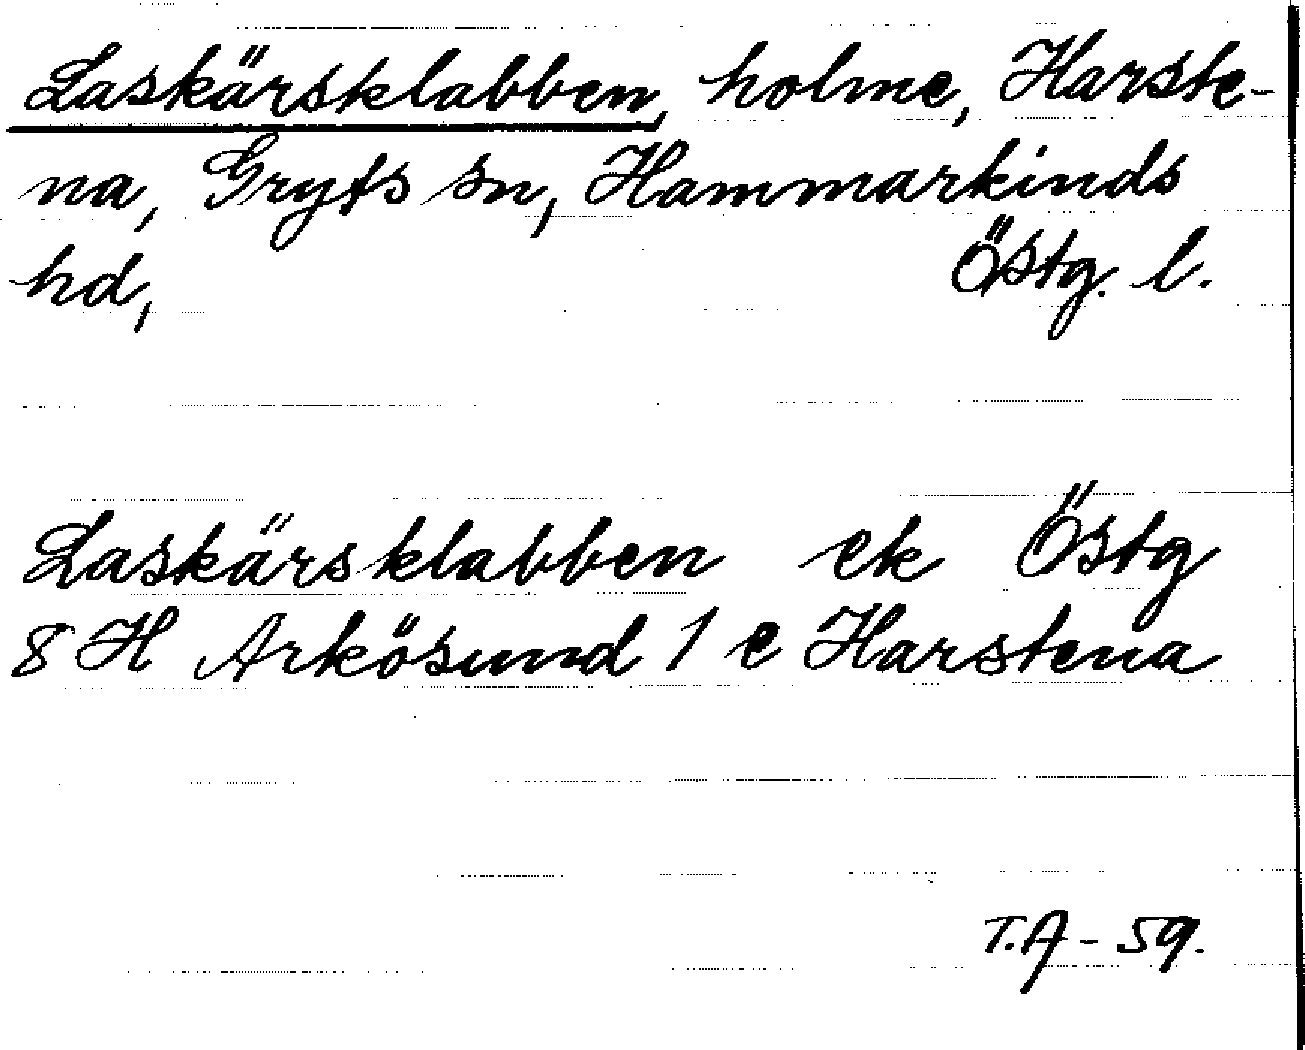 Laskärsklabben, holme, Harste-
na, Gryts sn, Hammarkinds
hd, Östg. l.
Laskärsklabben ek Östg
8 H Arkösund 1 e Harstena
T.A - 59.